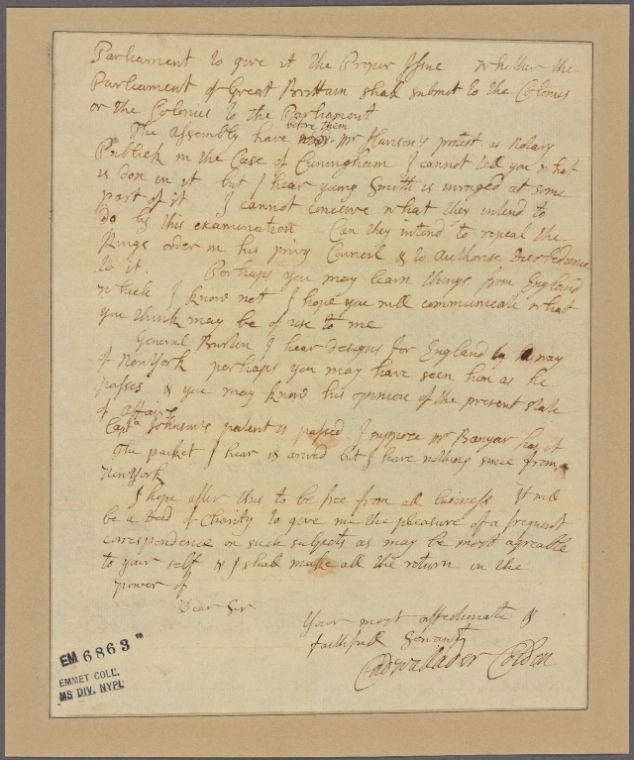 Parliament to give it the Proper Issue whether the
Parliament of Great Brittain shall submit to the Colonies
or the Colonies to the Parliament
before them
The Assembly have Mr Harison's protest as Notary
Publick in the Case of Cuningham I cannot tell you what
is don in it but I hear young Smith is inraged at some
part of it I cannot conceive what they intend to
do by this examination Can they intend to repeal the
Kings order in his privy Council & to Authorise Disobedience
to it. Perhaps you may learn things from England
which I know not I hope you will communicate what
you think may be of use to me
General Burton I hear designs for England by way
of New York perhaps you may have seen him as he
passes & you may know his opinion of the present state
of affairs
Capt Johnson's patent is passed I suppose Mr Banyar has it
The packet I hear is arived but I have nothing since from
New York
I hope after this to be free from all business It will
be a Deed of Charity to give me the pleasure of a frequent
correspondence on such subjects as may be most agreable
to your self & I shall make all the return in the
power of
Dear Sir
Your most affectionate &
faithful Servant
Cadwallader Colden
EM 6863
EMMET COLL.
MS DIV. NYPL